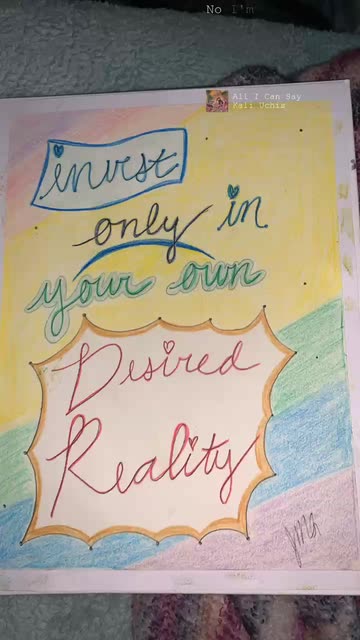 No I'm
All I Can Say
Kali Uchis
invest
only in
your own
Desired
Reality